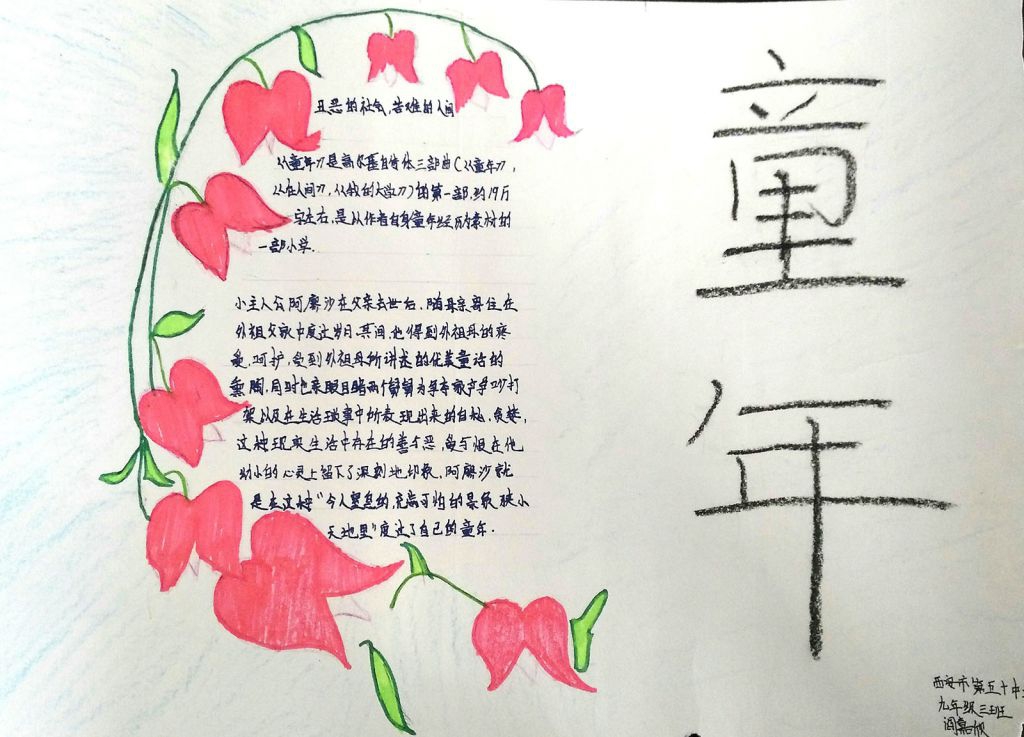 童年
丑恶的社会,苦难的人间
《童年》是高尔基自传体三部曲(《童年》,
《在人间》,《我的大学》)的第一部.约19万
字左右,是以作者自身童年经历为素材的
一部小学.
小主人公阿廖沙在父亲去世后,随母亲寄住在
外祖父家中度过岁月.其间,他得到外祖母的疼
爱,呵护,受到外祖母所讲述的优美童话的
熏陶,同时也亲眼目睹两个舅舅为争夺家产争吵打
架以及在生活琐事中所表现出来的自私,贪婪,
这种现实生活中存在的善与恶,爱与恨在他
幼小的心灵上留下了深刻地印象,阿廖沙就
是在这种"令人窒息的,充满可怕的景象狭小
天地里"度过了自己的童年.
西安市第五十中
九年级三班